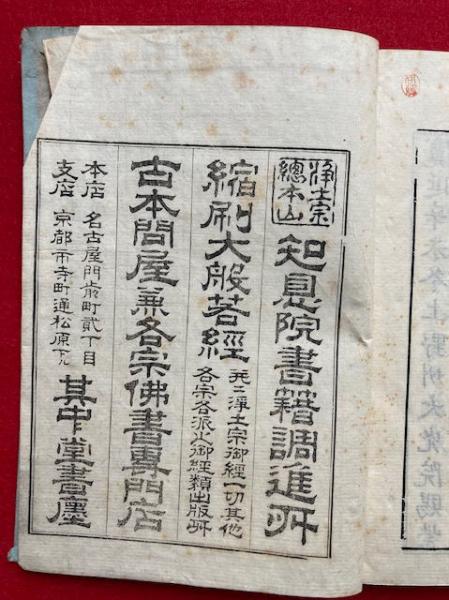 浄土宗
總本山
知恩院書籍調進所
縮刷大般若經
并ニ浄土宗御經一切其他
各宗各派ノ御經類出版所
古本問屋兼各宗佛書專門店
本店 名古屋門前町貳丁目
支店 京都市寺町通松原下ル
其中堂書店